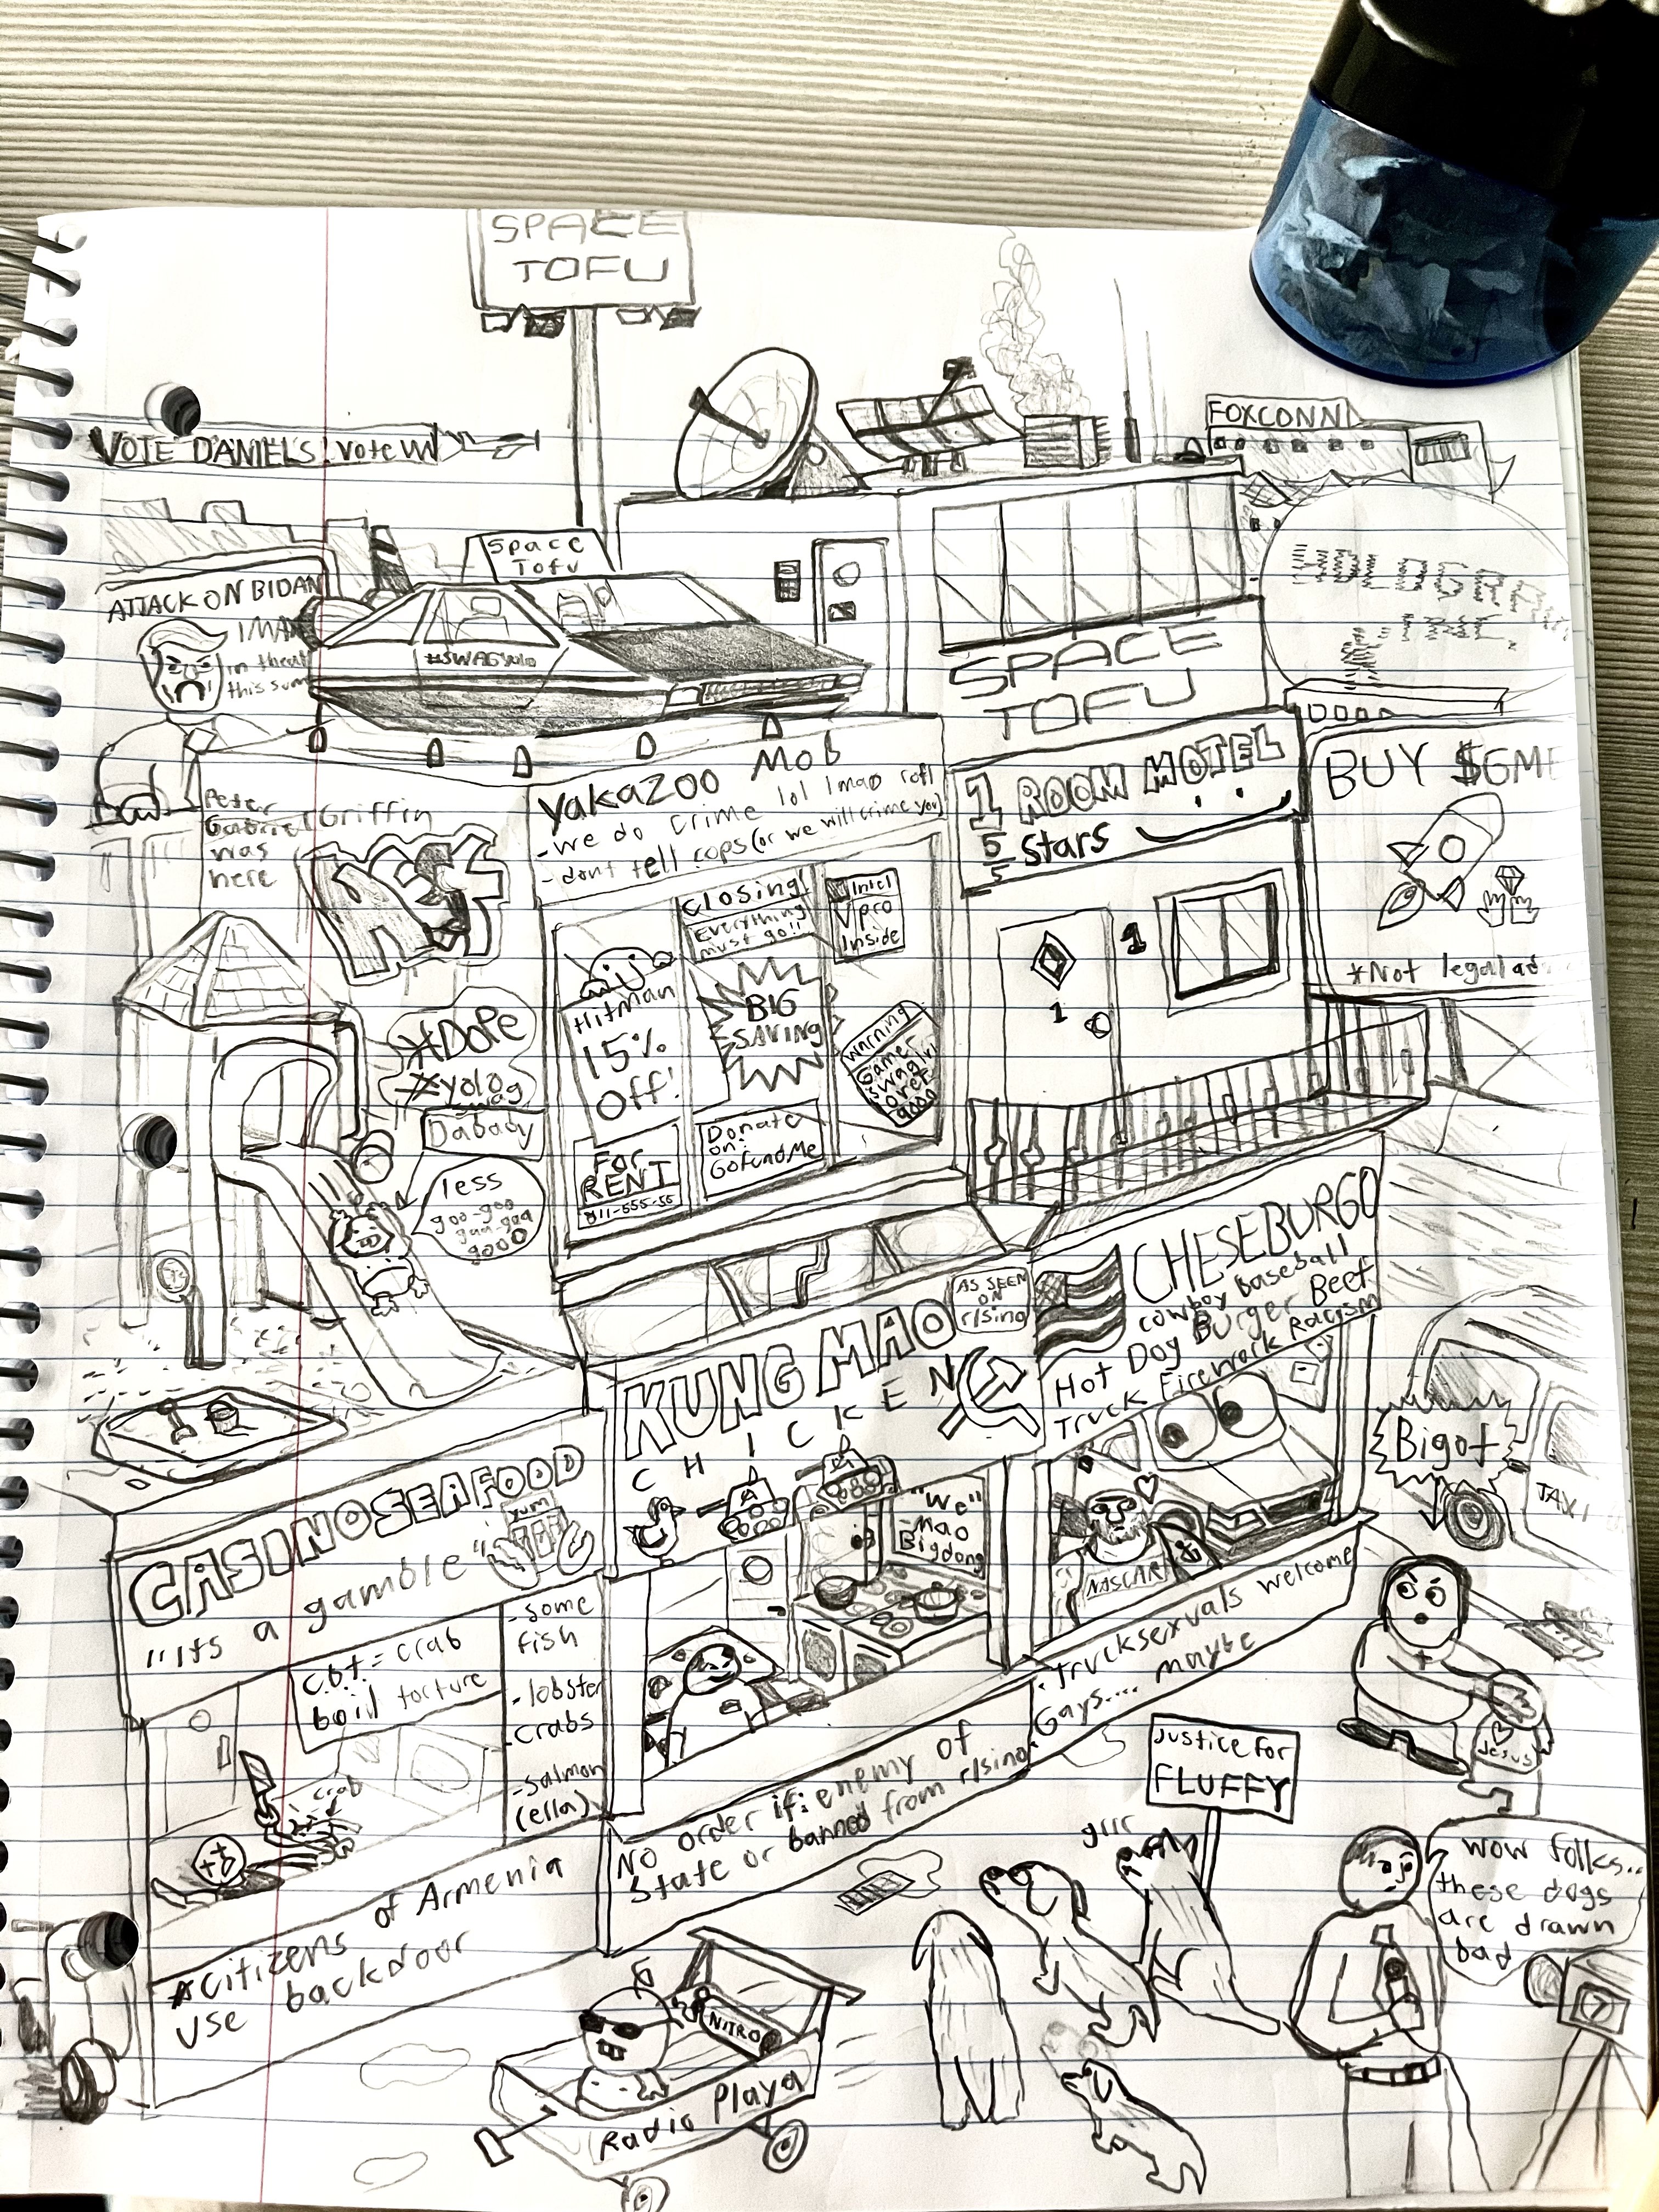 SPACE
TOFU
VOTE DANIELS! Vote
FOXCONN
Space
Tofu
ATTACK ON BIDAN
IMAX
in theat
this sum
#SWAGyolo
SPACE
TOFU
Peter
Gabriel Griffin
was
here
yakazoo Mob
-we do crime lol lmao rofl
- dont tell cops (or we will crime you)
1 ROOM MOTEL
5 Stars
5
BUY $GME
*Not legal ad
Closing!
Everything
must go!!
Intel
Vpro
Inside
Hitman
15%
Off!
BIG
SAVING
Warning
Gamer
swag
gooo
For
RENT
811-555-55
Donate
on:
GoFundMe
1
1
#Dope
#yolo
swag
Dababy
less
goo-goo
gaa-gaa
gooo
KUNG MAO
CHICKEN
AS SEEN
ON
r/sino
CHESEBURGO
cowboy Baseball
Hot Dog Burger Beef
Truck Firework Racism
Bigot
TAXI
CASINO SEAFOOD
"its a gamble"
yum
c.b.t. = crab
boil torture
-some
fish
-lobster
-crabs
-salmon
(ella)
crab
"We"
-Mao
Bigdong
NASCAR
*citizens of Armenia
use backdoor
No order if: enemy of
State or banned from r/sino
Trucksexuals welcome
Gays.... maybe
Jesus
Justice for
FLUFFY
grrr
wow folks..
these dogs
are drawn
bad
NITRO
Radio Playa